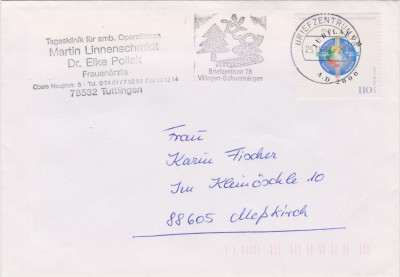 Tagesklinik für amb. Operationen
Martin Linnenschmidt
Dr. Elke Pollak
Frauenärzte
78532 Tuttlingen
Briefzentrum 78
Villingen-Schwenningen
BRIEFZENTRUM
110
Frau
Karin Fischer
Im Kleinöschle 10
88605 Meßkirch